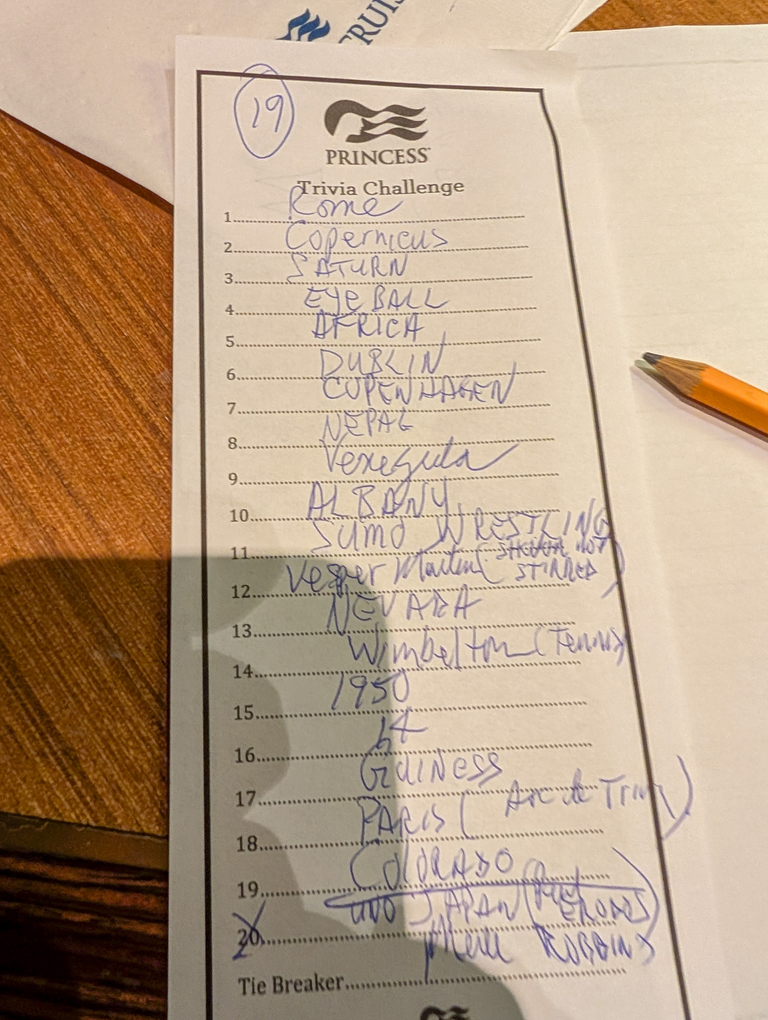 CRUIS
19
PRINCESS
Trivia Challenge
1 Rome
2 Copernicus
3 SATURN
4 EYE BALL
5 AFRICA
6 DUBLIN
7 COPENHAGEN
8 NEPAL
9
10 ALBANY
11 SUMO WRESTLING
12 Vesper (SHAKEN NOT STIRRED)
13 NEVADA
14 Wimbelton (Tennis)
15 1950
16 64
17 GUINESS
18 PARIS (Arc de
19 COLORADO
20 JAPAN
Tie Breaker ROBBINS